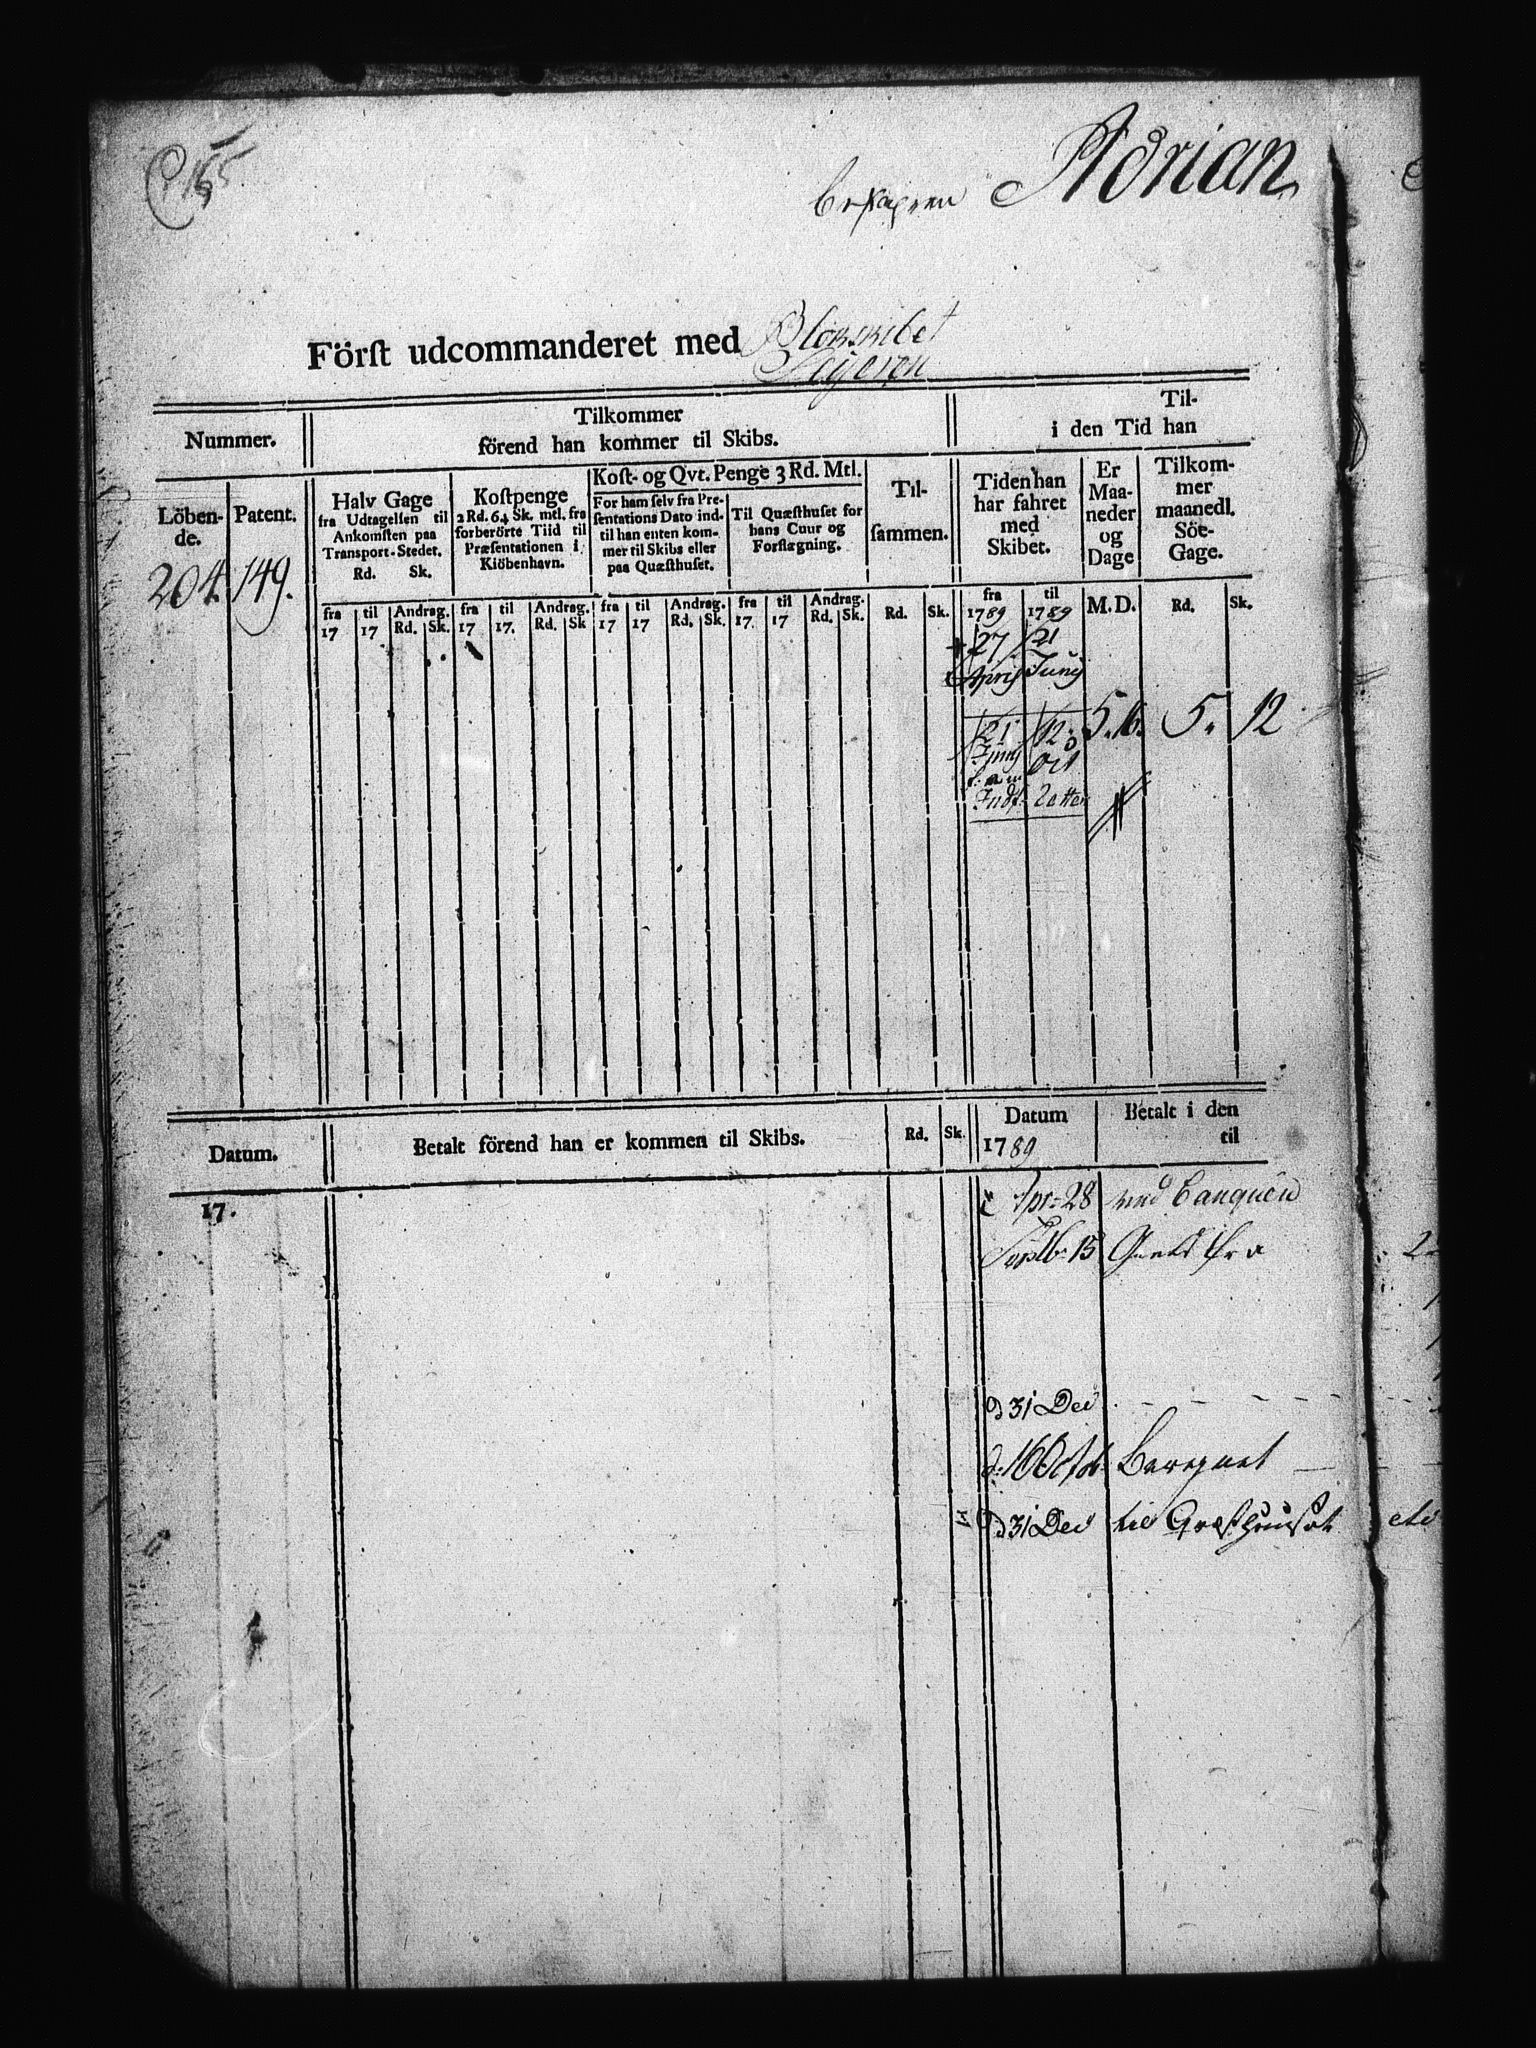 155
Adrian
Först udcommanderet med Blokskibet
Sejeren
Nummer.
Tilkommer
förend han kommer til Skibs.
Til-
i den Tid han
Löben-
de.
Patent.
Halv Gage
fra Udtagelsen til
Ankomsten paa
Transport-Stedet.
Rd. Sk.
Kostpenge
2 Rd. 64 Sk. mtl. fra
forberörte Tiid til
Præsentationen i
Kiöbenhavn.
Kost- og Qvt. Penge 3 Rd. Mtl.
For ham selv fra Pre-
sentations Dato ind-
til han enten kom-
mer til Skibs eller
paa Quæsthuset.
Til Quæsthuset for
hans Cuur og
Forflægning.
Til-
sammen.
Tiden han
har fahret
med
Skibet.
Er
Maa-
neder
og
Dage
Tilkom-
mer
maanedl.
Söe-
Gage.
204. 149.
fra
17
til
17
Andrag.
Rd. Sk.
fra
17
til
17.
Andrag.
Rd. Sk
fra
17
til
17
Andrag.
Rd. Sk.
fra
17.
til
17
Andrag.
Rd. Sk.
Rd. Sk.
fra
1789
til
1789
M. D.
Rd. Sk.
27 21
April Junij
21 12
Junij Oct
5. 16. 5. 12
Datum.
Betalt förend han er kommen til Skibs.
Rd. Sk.
Datum
1789
Betalt i den
til
17.
Apr: 28 ved Banquen
Septb: 15
d 31 Dec
d: 16 Octbr Beregnet
d 31 Dec til Qvæsthuuset